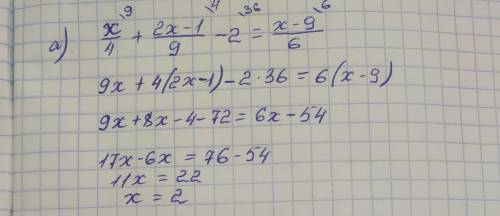 а) x/4 \9 + (2x-1)/9 \4 - 2 \36 = (x-9)/6 \6
9x + 4(2x-1) - 2·36 = 6(x-9)
9x + 8x - 4 - 72 = 6x - 54
17x - 6x = 76 - 54
11x = 22
x = 2